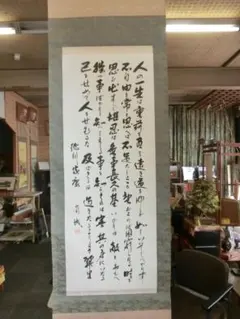 人の一生は重荷を負て遠き道をゆくが如しいそぐべからず
不自由を常と思へば不足なしこころに望おこらば困窮したる時を
思ひ出すべし堪忍は無事長久の基いかりは敵と思へ
勝事ばかり知りてまくる事を知らざれば害其の身にいたる
己をせめて人をせむるな及ばざるは過ぎたるより
徳川家康